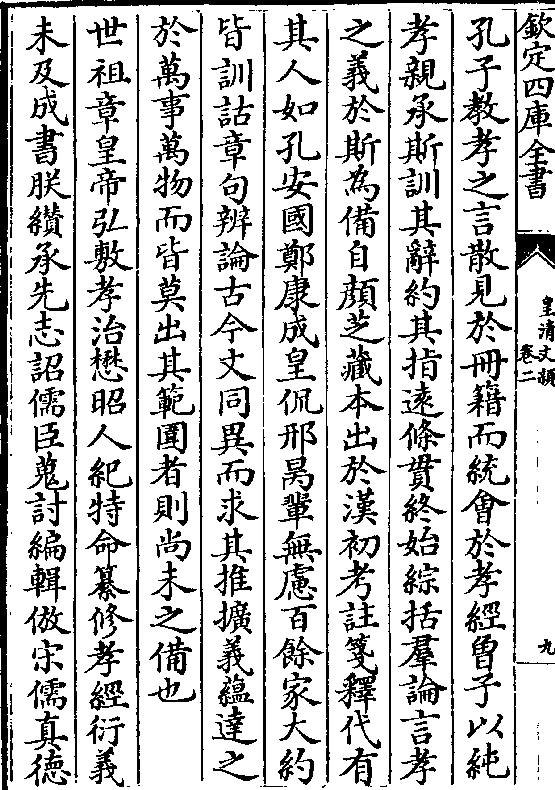 欽定四庫全書
皇清文穎
卷二
九
孔子教孝之言散見於冊籍而統會於孝經曾子以純
孝親承斯訓其辭約其指遠條貫終始綜括羣論言孝
之義於斯為備自顔芝藏本出於漢初考註箋釋代有
其人如孔安國鄭康成皇侃邢昺軰無慮百餘家大約
皆訓詁章句辨論古今文同異而求其推擴義藴達之
於萬事萬物而皆莫出其範圍者則尚未之備也
世祖章皇帝弘敷孝治懋昭人紀特命纂修孝經衍義
未及成書朕纘承先志詔儒臣蒐討編輯倣宋儒真德